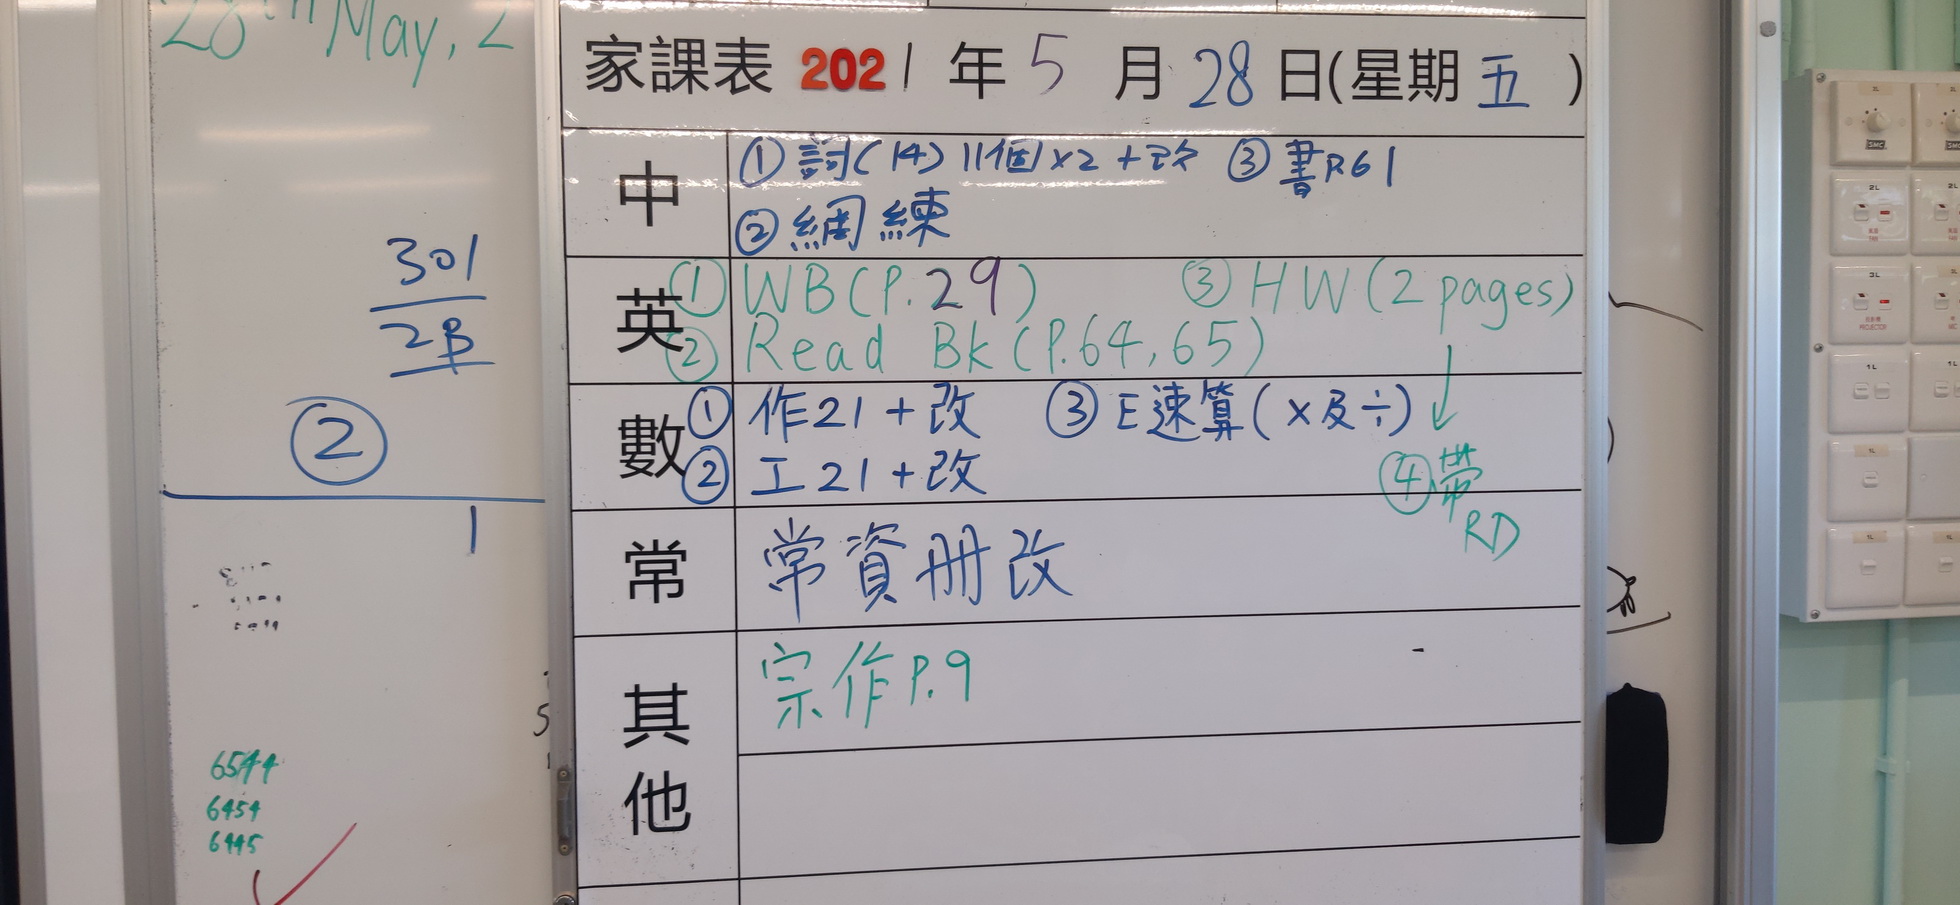 28th May, 2
301
2B
②
1
6544
6454
6445
家課表 2021 年 5 月 28 日(星期 五 )
中
① 詞(14) 11個×2 + 改 ③ 書P.61
② 網練
英
① WB(P.29) ③ HW(2 pages)
② Read Bk(P.64,65)
數
① 作21+改 ③ E速算(×及÷)
② 工21+改
④帶
RD
常
常資冊改
其他
宗作P.9